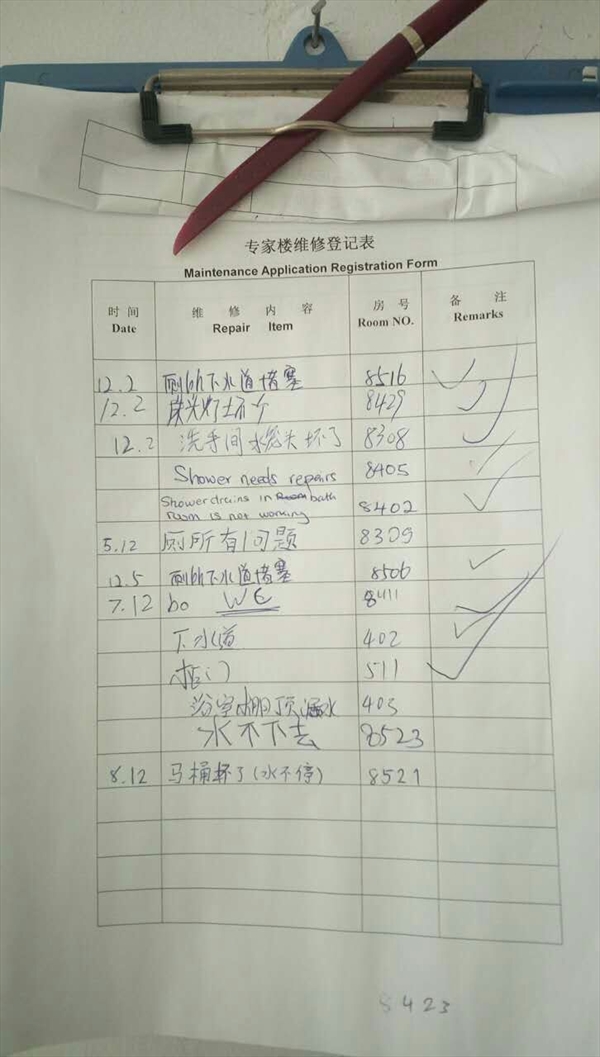 专家楼维修登记表
Maintenance Application Registration Form
时间 维修内容 房号 备注
Date Repair Item Room NO. Remarks
12.2 厕所下水道堵塞 8516
12.2 床头灯坏个 8429
12.2 洗手间水龙头坏了 8308
Shower needs repairs 8405
Shower drains in bath
room is not working 8402
5.12 厕所有问题 8309
12.5 厕所下水道堵塞 8506
7.12 bo WE 8411
下水道 402
511
浴室棚顶漏水 403
水不下去 8523
8.12 马桶坏了(水不停) 8521
8423